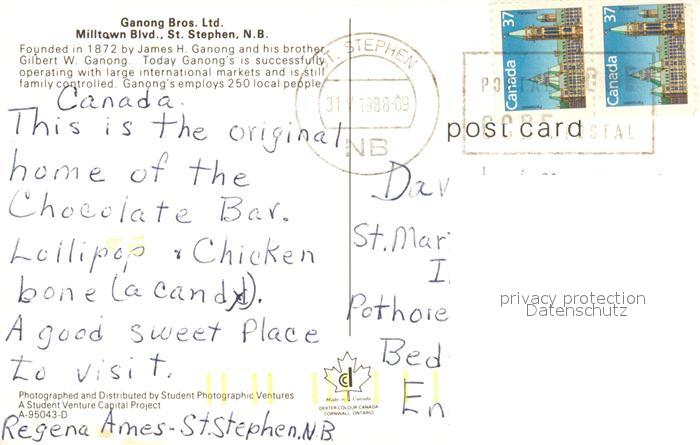 Ganong Bros. Ltd.
Milltown Blvd., St. Stephen, N.B.
Founded in 1872 by James H. Ganong and his brother
Gilbert W. Ganong. Today Ganong's is successfully
operating with large international markets and is still
family controlled. Ganong's employs 250 local people.
Canada.
This is the original
home of the
Chocolate Bar.
Lollipop & Chicken
bone (a candy).
A good sweet Place
to visit.
Photographed and Distributed by Student Photographic Ventures
A Student Venture Capital Project
A-95043-D
Regena Ames-St.Stephen, N.B.
ST. STEPHEN
1988-09
NB
37
Canada
37
Canada
post card
POSTAL
Dav
St. Mar
I
Pothore
Bed
En
privacy protection
Datenschutz
Made in Canada
DEXTER COLOUR CANADA
CORNWALL, ONTARIO